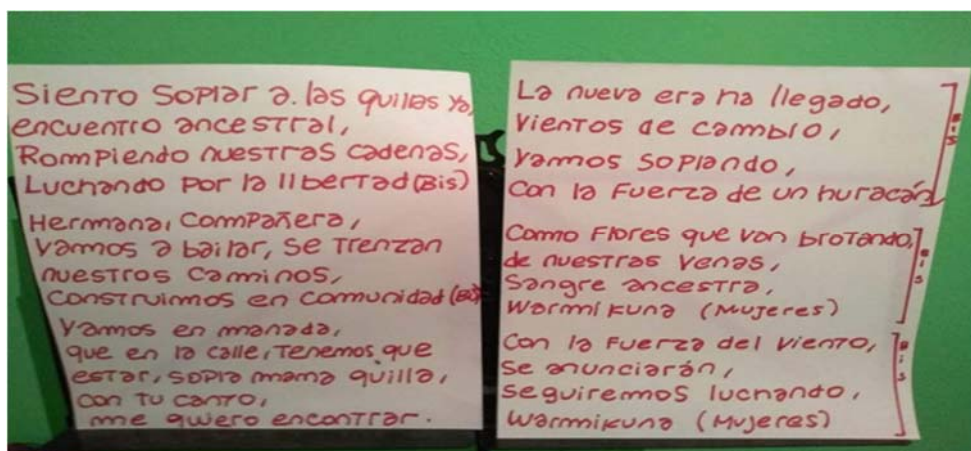 Siento soplar a. las quillas ya,
encuentro ancestral,
Rompiendo nuestras cadenas,
Luchando por la libertad (Bis)
Hermana, compañera,
vamos a bailar, se trenzan
nuestros caminos,
construimos en comunidad (Bis)
Vamos en manada,
que en la calle, tenemos que
estar, sopla mama quilla,
con tu canto,
me quiero encontrar.
La nueva era ha llegado,
vientos de cambio,
vamos soplando,
con la fuerza de un huracán
Bis
Como flores que van brotando,
de nuestras venas,
Sangre ancestra,
Warmikuna (Mujeres)
Bis
Con la fuerza del viento,
se anunciarán,
seguiremos luchando,
Warmikuna (Mujeres)
Bis